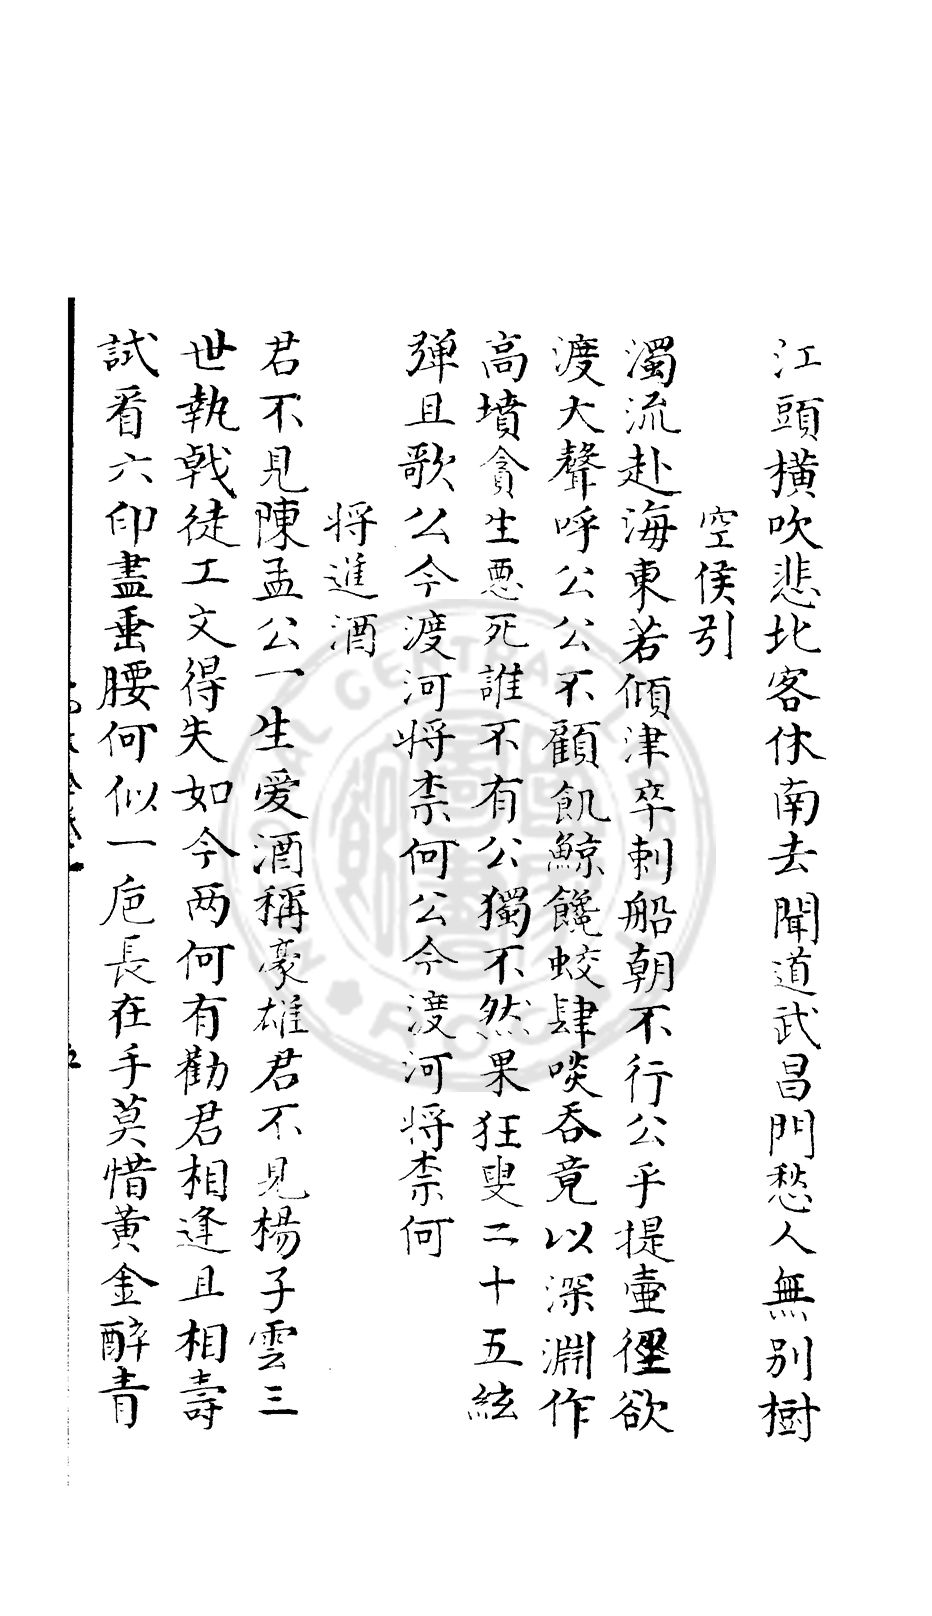 江頭橫吹悲北客休南去聞道武昌門愁人無別樹
空侯引
濁流赴海東若傾津卒刺船朝不行公乎提壷徑欲
渡大聲呼公公不顧飢鯨饞蛟肆啖吞竟以深淵作
高墳貪生惡死誰不有公獨不然果狂叟二十五絃
彈且歌公今渡河將柰何公今渡河將柰何
將進酒
君不見陳孟公一生爱酒稱豪雄君不見楊子雲三
世執戟徒工文得失如今兩何有勸君相逢且相壽
試看六印盡垂腰何似一巵長在手莫惜黄金醉青